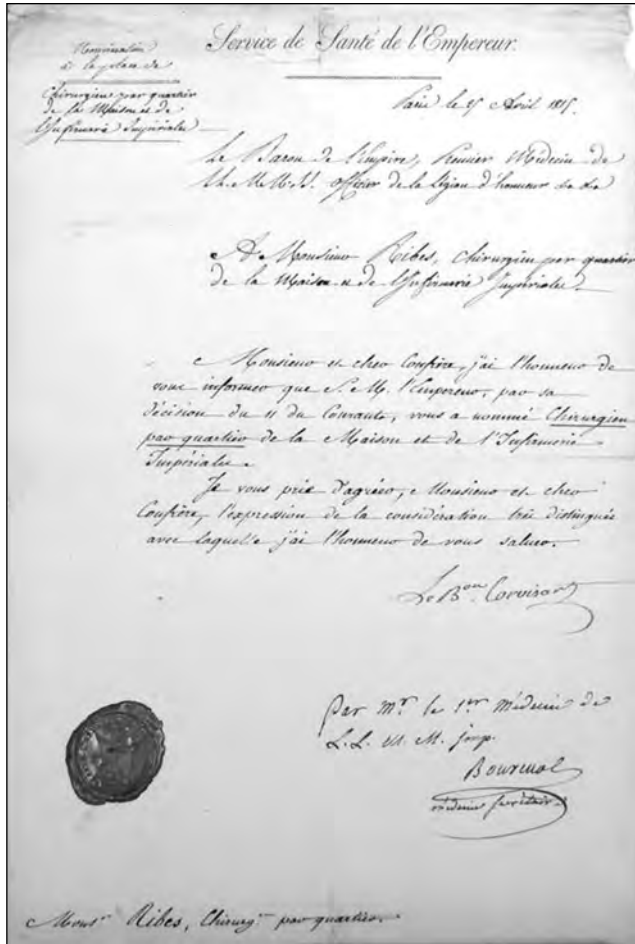 Service de Santé de l'Empereur.
Nomination
à la place de
Chirurgien par quartier
de la Maison et de
l'Infirmerie Impériales
Paris le 15 Avril 1815.
Le Baron de l'Empire, Premier Médecin de
LL.MM.II. officier de la légion d'honneur
A Monsieur Ribes, Chirurgien par quartier
de la Maison et de l'Infirmerie Impériales.
Monsieur et cher Confrère, j'ai l'honneur de
vous informer que S. M. l'Empereur, par sa
décision du 11 du Courant, vous a nommé Chirurgien
par quartier de la Maison et de l'Infirmerie
Impériales.
Je vous prie d'agréer, Monsieur et cher
Confrère, l'expression de la considération très distinguée
avec laquelle j'ai l'honneur de vous saluer.
Le Bon. Corvisart
Par Mr le 1er Médecin de
L.L. M. M. imp.
médecin secrétaire
Monsr Ribes, Chirurgn par quartier.